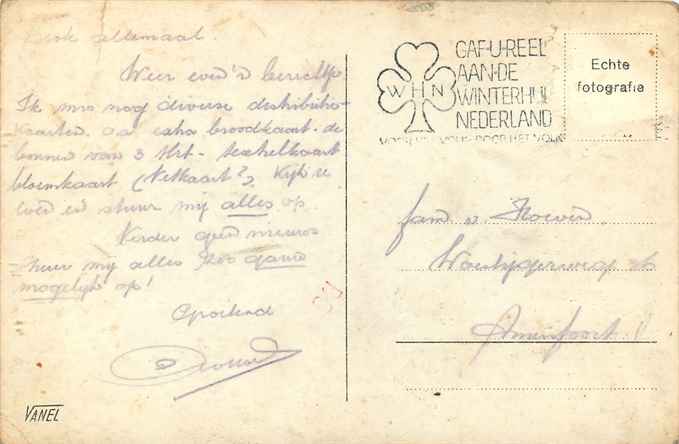 allemaal.
Weer even'n berichtje
Ik mis nog diverse distributie-
kaarten. o.a. extra broodkaart. de
bonnen van 3 Mrt - textielkaart
bloemkaart (Vetkaart?). Kijk
even en stuur mij alles op.
Verder geen nieuws
Stuur mij alles zoo gauw
mogelijk op!
Groetend
VANEL
WHN
GAF·U·REEDS
AAN·DE
WINTERHULP
NEDERLAND
VOOR HET VOLK DOOR HET VOLK
Echte
fotografie
fam. v.
Amersfoort!!